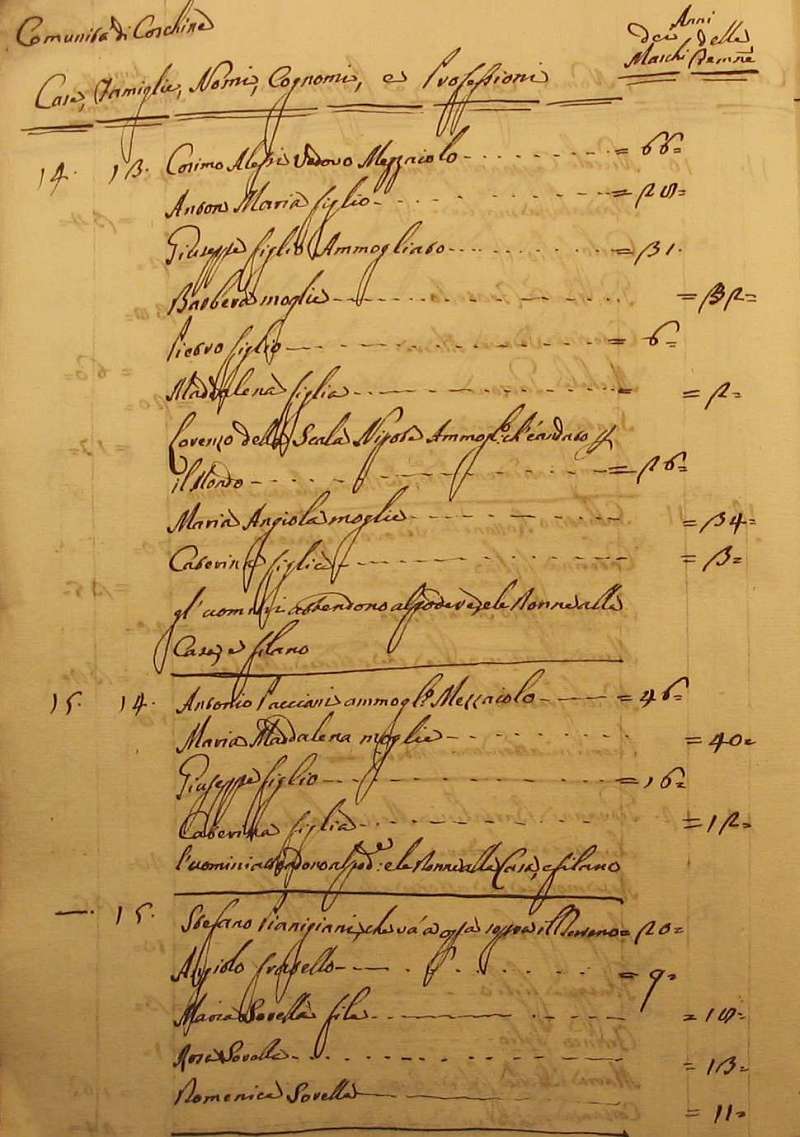 Comunità di Torchinè
Anni
dei Maschi delle Femne
Case, Famiglie, Nomi, Cognomi, e Professioni
14. 13. Cosimo Alessi Vedovo Mezzaiolo = 66=
Anton Maria figlio = 28=
Giuseppe figlio Ammogliato = 31.
Barbera moglie = 32=
Pietro figlio = 6=
Maddalena figlia = 2=
Lorenzo della Scala Nipote Ammogl.º ch'é andato p
il Mondo = 26=
Maria Angiola moglie = 34=
Caterina figlia = 3=
gl'uomini attendono al Podere, e le Donne alla
Casa, e filano
15. 14. Antonio Pacciani ammogl.º Mezzaiolo = 46=
Maria Maddalena moglie = 40=
Giuseppe figlio = 16=
Caterina figlia = 12=
l'uomini attendono al Pod:e e le Donne alla Casa, e filano
—. 15. Stefano Pianigiani, che và à opra sopra il Terreno = 20=
Angiolo fratello = 9=
Maria Sorella fila = 18=
Rosa Sorella = 13=
Domenica Sorella = 11=